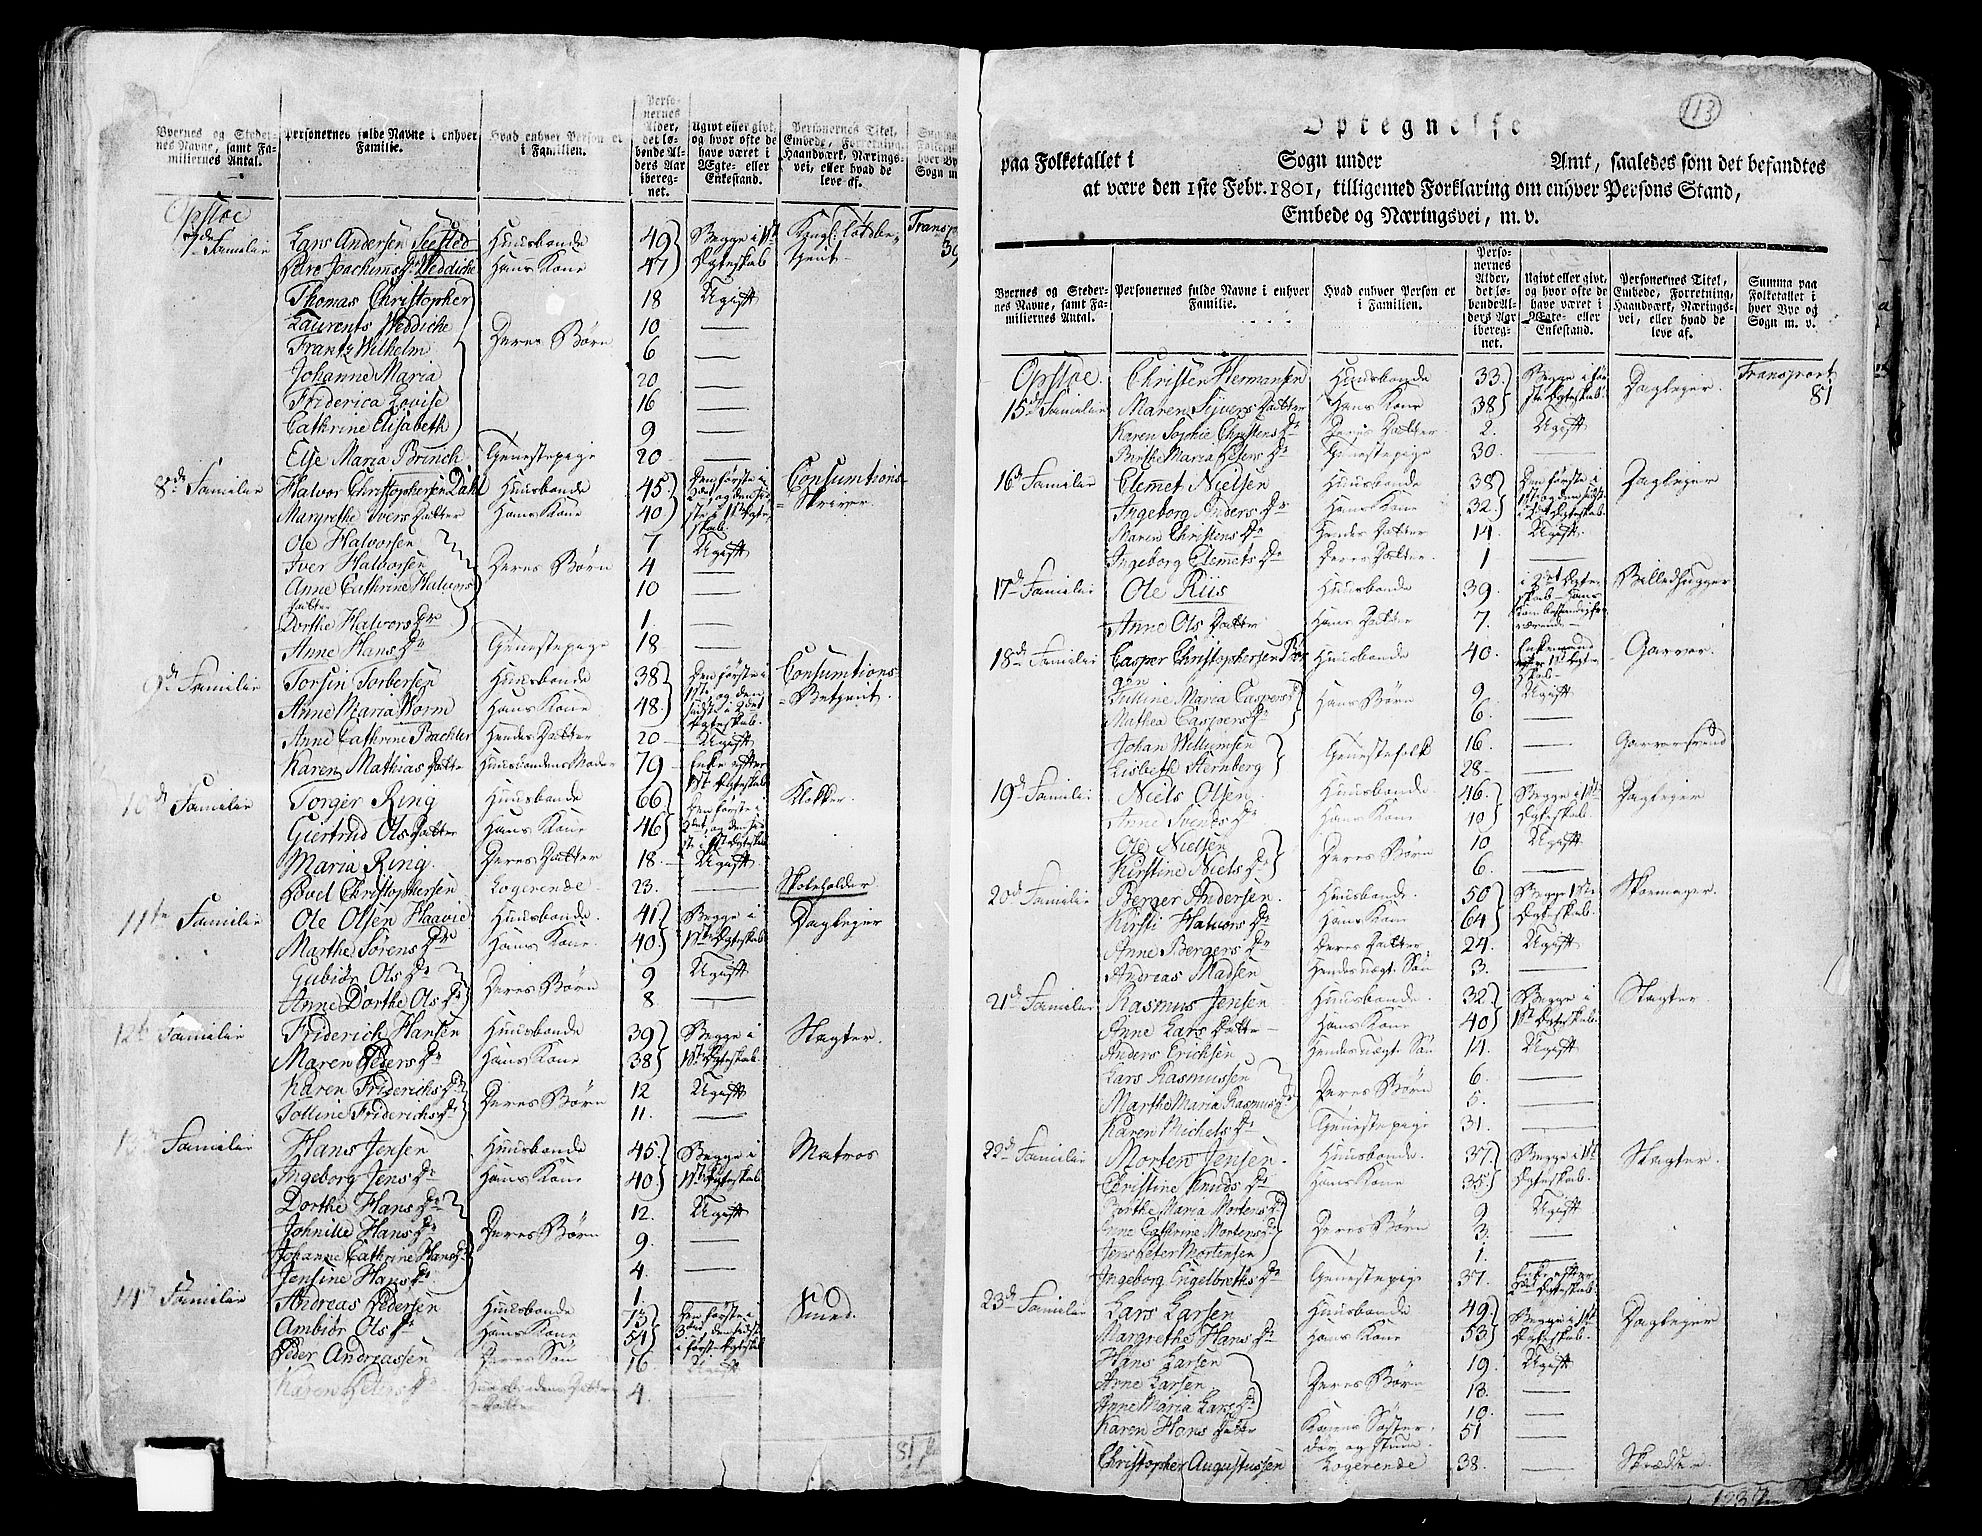 Byernes og Steder-nes Navne, samt Fa-miliernes Antal. | Personernes fulde Navne i enhver Familie. | Hvad enhver Person er i Familien. | Perso-nernes Alder, det lø-bende Al-ders Aar iberegnet. | Ugivt eller givt, og hvor ofte de have været i Ægte- eller Enkestand. | Personernes Titel, Embede, Forretning, Haandværk, Nærings-vei, eller hvad de leve af.
Opstoe Transp
7de Familie Lars Andersen Seested Huusbonde 49 Begge i 1st Kongl: toldbe-
Joachims Weddiche Hans Kone 47 Ægteskab tjent 39
Thomas Christopher 18 Ugift
Laurents Weddiche Deres Børn 10 —
Frantz Wilhelm 6 —
Johanne Maria 20 —
Friderica Lovise 16 —
Cathrine Elisabeth 9 —
Else Maria Brinch Tienestepige 20 —
8de Familie Halvor Christophersen Dahl Huusbonde 45 Den første i Consumtions-
Margrethe Ivers Datter Hans Kone 40 Skriver.
Ole Halvorsen 7 Ugift
Iver Halvorsen Deres Børn 4 —
Anne Cathrine Halvors datter 10 —
Dorthe Halvors Dr 1. —
Anne Hans Dr Tienestepige 18 —
9de Familie Torsin Torbersen Huusbonde 38 Den første i Consumtions-
Anne Maria Worm Hans Kone 48 1ste og den sidste i 2det Ægteskab. Betjent.
Anne Cathrine Bachler Hendes Datter 20 Ugift
Karen Mathias Datter Huusbondens Moder 79 Enke efter 1st Ægteskab
10de Familie Torger Ring Huusbonde 66 Den første i Klokker.
Giertrud Ols Datter Hans Kone 46
Maria Ring. Deres Datter 18 Ugift
Povel Christophersen Logerende 23. — Skoleholder
11te Familie Ole Olsen Haavie Huusbonde 41 Begge i Daglejer
Marthe Sørens Dr Hans Kone. 40 1ste Ægteskab
Gubiør Ols Dr Deres Børn 9 Ugift
Anne Dorthe Ols Dr 8. —
12te Familie Friderich Hansen Huusbonde 39 Begge i Slagter.
Maren Peders Dr Hans Kone 38 1st Ægteskab
Karen Friderichs Dr Deres Børn 12 Ugift
Friderichs Dr 11. —
13de Familie Hans Jensen Huusbonde 45. Begge i Matros
Ingeborg Jens Dr Hans Kone 40 1st Ægteskab
Dorthe Hans Dr 12. Ugift
Johnille Hans Dr Deres Børn 9. —
Johanne Cathrine Hans Dr 4. —
Jensine Hans Dr 1. —
14de Familie Andreas Pedersen Huusbonde 73 Den første i Smed.
Ambiør Ols Dr Hans Kone 54
Peder Andreassen Deres Søn 16 Ugift
Karen Peders Dr 4. —
81
113
Optegnelse
paa Folketallet i Sogn under Amt, saaledes som det befandtes
at være den 1ste Febr. 1801, tilligemed Forklaring om enhver Persons Stand,
Embede og Næringsvei, m. v.
Byernes og Steder-nes Navne, samt Fa-miliernes Antal. | Personernes fulde Navne i enhver Familie. | Hvad enhver Person er i Familien. | Perso-nernes Alder, det lø-bende Al-ders Aar iberegnet. | Ugivt eller givt, og hvor ofte de have været i Ægte- eller Enkestand. | Personernes Titel, Embede, Forretning, Haandværk, Nærings-vei, eller hvad de leve af. | Summa paa Folketallet i hver Bye og Sogn m. v.
Opstoe. Christen Hermansen Huusbonde 33. Begge i før- Daglejer. Transport
15de Familie Maren Sivers Datter Hans Kone 38 ste Ægteskab. 81
Karen Sophie Christens Dr Deres Datter 2. Ugift
Birthe Maria Peders Dr Tienestepige 30. —
16de Familie Clemet Nielsen Huusbonde 38 Den første i Daglejer
Ingeborg Anders Dr Hans Kone 32
Maren Christens Dr Hendes Datter 14. Ugift.
Ingeborg Clemets Dr Deres Datter 1 —
17de Familie Ole Riis Huusbonde 39. Billedhugger
Anne Ols Datter Hans Datter 7.
18de Familie Casper Christophersen Huusbonde 40. Enkemand efter 1st Ægteskab. Garver.
Maria Caspers Dr Hans Børn 9. Ugift
Mathea Caspers Dr 6. —
Johan Willumsen Tienestefolk 16. — Garversvend
Lisbeth Sternberg 28. —
19de Familie Niels Olsen Huusbonde. 46. Begge i 1ste Daglejer
Anne Svends Dr Hans Kone Ægteskab.
Ole Nielsen Deres Børn 10 Ugift
Kirstine Niels Dr 6. —
20de Familie Berger Andersen Huusbonde. 50 Begge 1ste Skomager.
Kirsti Halvors Dr Hans Kone 64 Ægteskab.
Anne Bergers Dr Deres Datter 24. Ugift
Andreas Madsen Hendes uægte Søn 3. —
21de Familie Rasmus Jensen Huusbonde. 32 Begge i Slagter
Anne Lars Datter Hans Kone 40 1st Ægteskab.
Anders Erichsen Hendes uægte Søn 14. Ugift
Lars Rasmussen Deres Børn 6. —
Marthe Maria Rasmus Dr 5. —
Karen Michels Dr Tienestepige 31. —
22de Familie Morten Jensen. Huusbonde. 37. Begge i 1st Slagter.
Christine Knuds Dr Hans Kone 35 Ægteskab.
Birthe Maria Mortens Dr 9 Ugift
Anne Cathrine Mortens Dr Deres Børn 3. —
Jens Peter Mortensen 1. —
Ingeborg Engelbreths Dr Tienestepige 37.
23de Familie Lars Larsen Huusbonde 49 Begge i 1st Daglejer
Margrethe Hans Dr Hans Kone 53 Ægteskab.
Hans Larsen 19. Ugift
Anne Larsen Deres Børn 18. —
Anne Maria Lars Dr 10. —
Karen Hans Datter Konens Søster døv og stum. 51 —
Christopher Augustussen Logerende 38. — Skrædder.